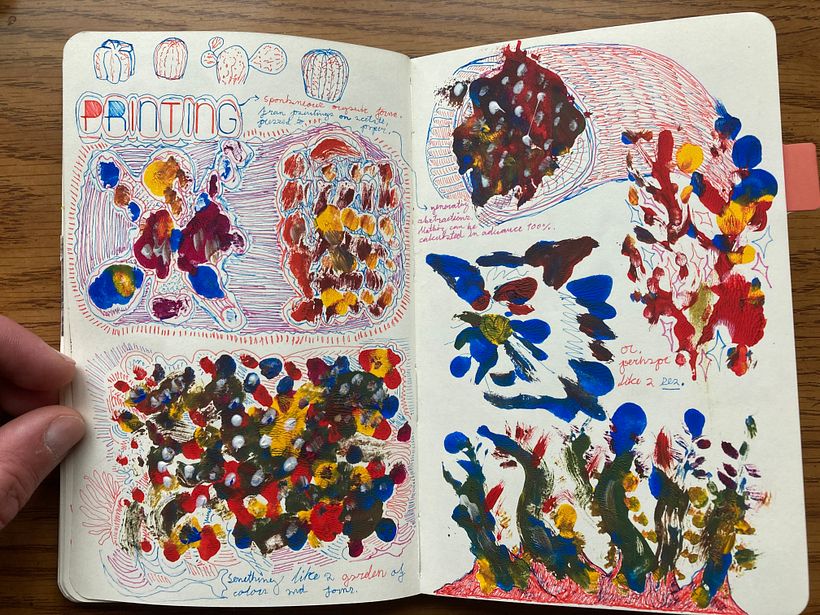 PRINTING
spontaneous organic forms.
from paintings on acetate,
pressed to paper.
generating
abstractions.
Nothing can be
calculated in advance 100%.
or,
perhaps
like a sea.
Something like a garden of
colour and forms.